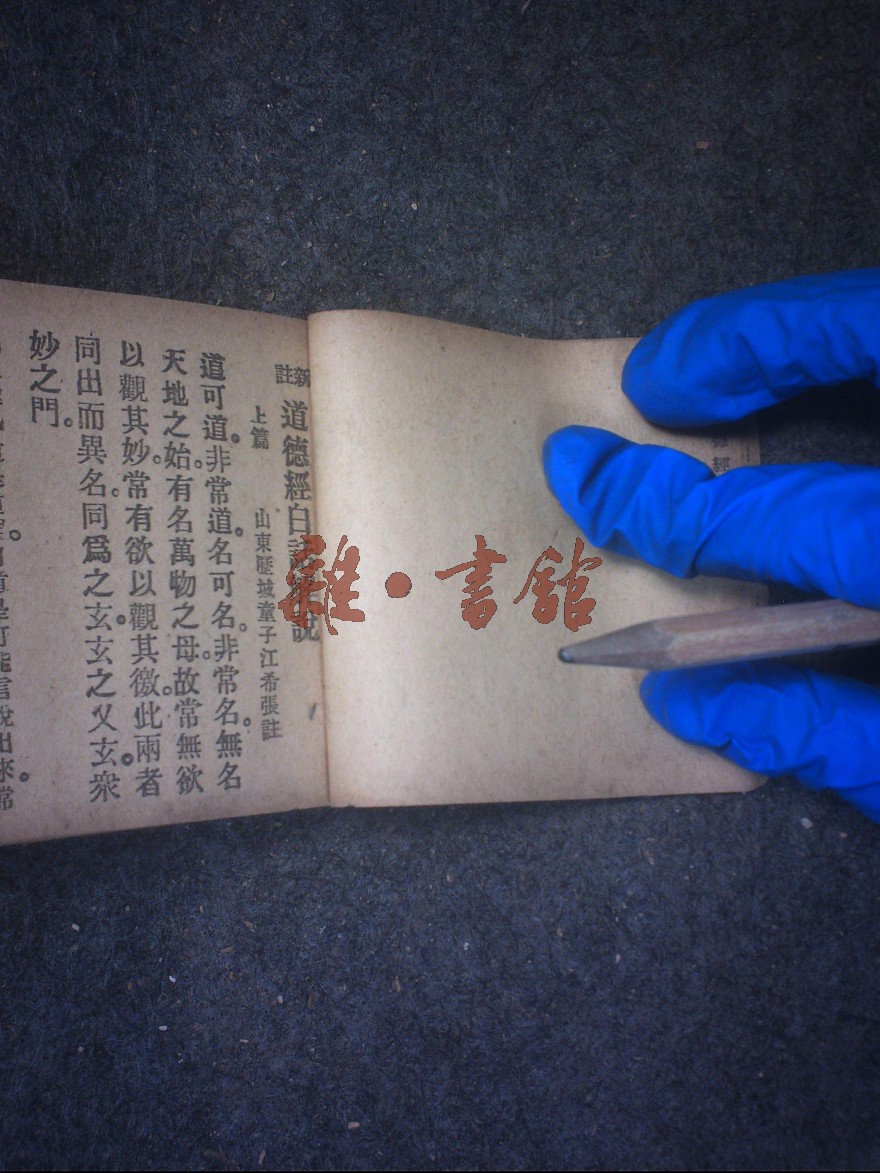 經
新註 道德經白話解說
上篇 山東歷城童子江希張註
道可道。非常道。名可名。非常名。無名
天地之始。有名萬物之母。故常無欲
以觀其妙。常有欲以觀其徼。此兩者
同出而異名。同爲之玄。玄之又玄。衆
妙之門。
言說出來。常
雜·書館